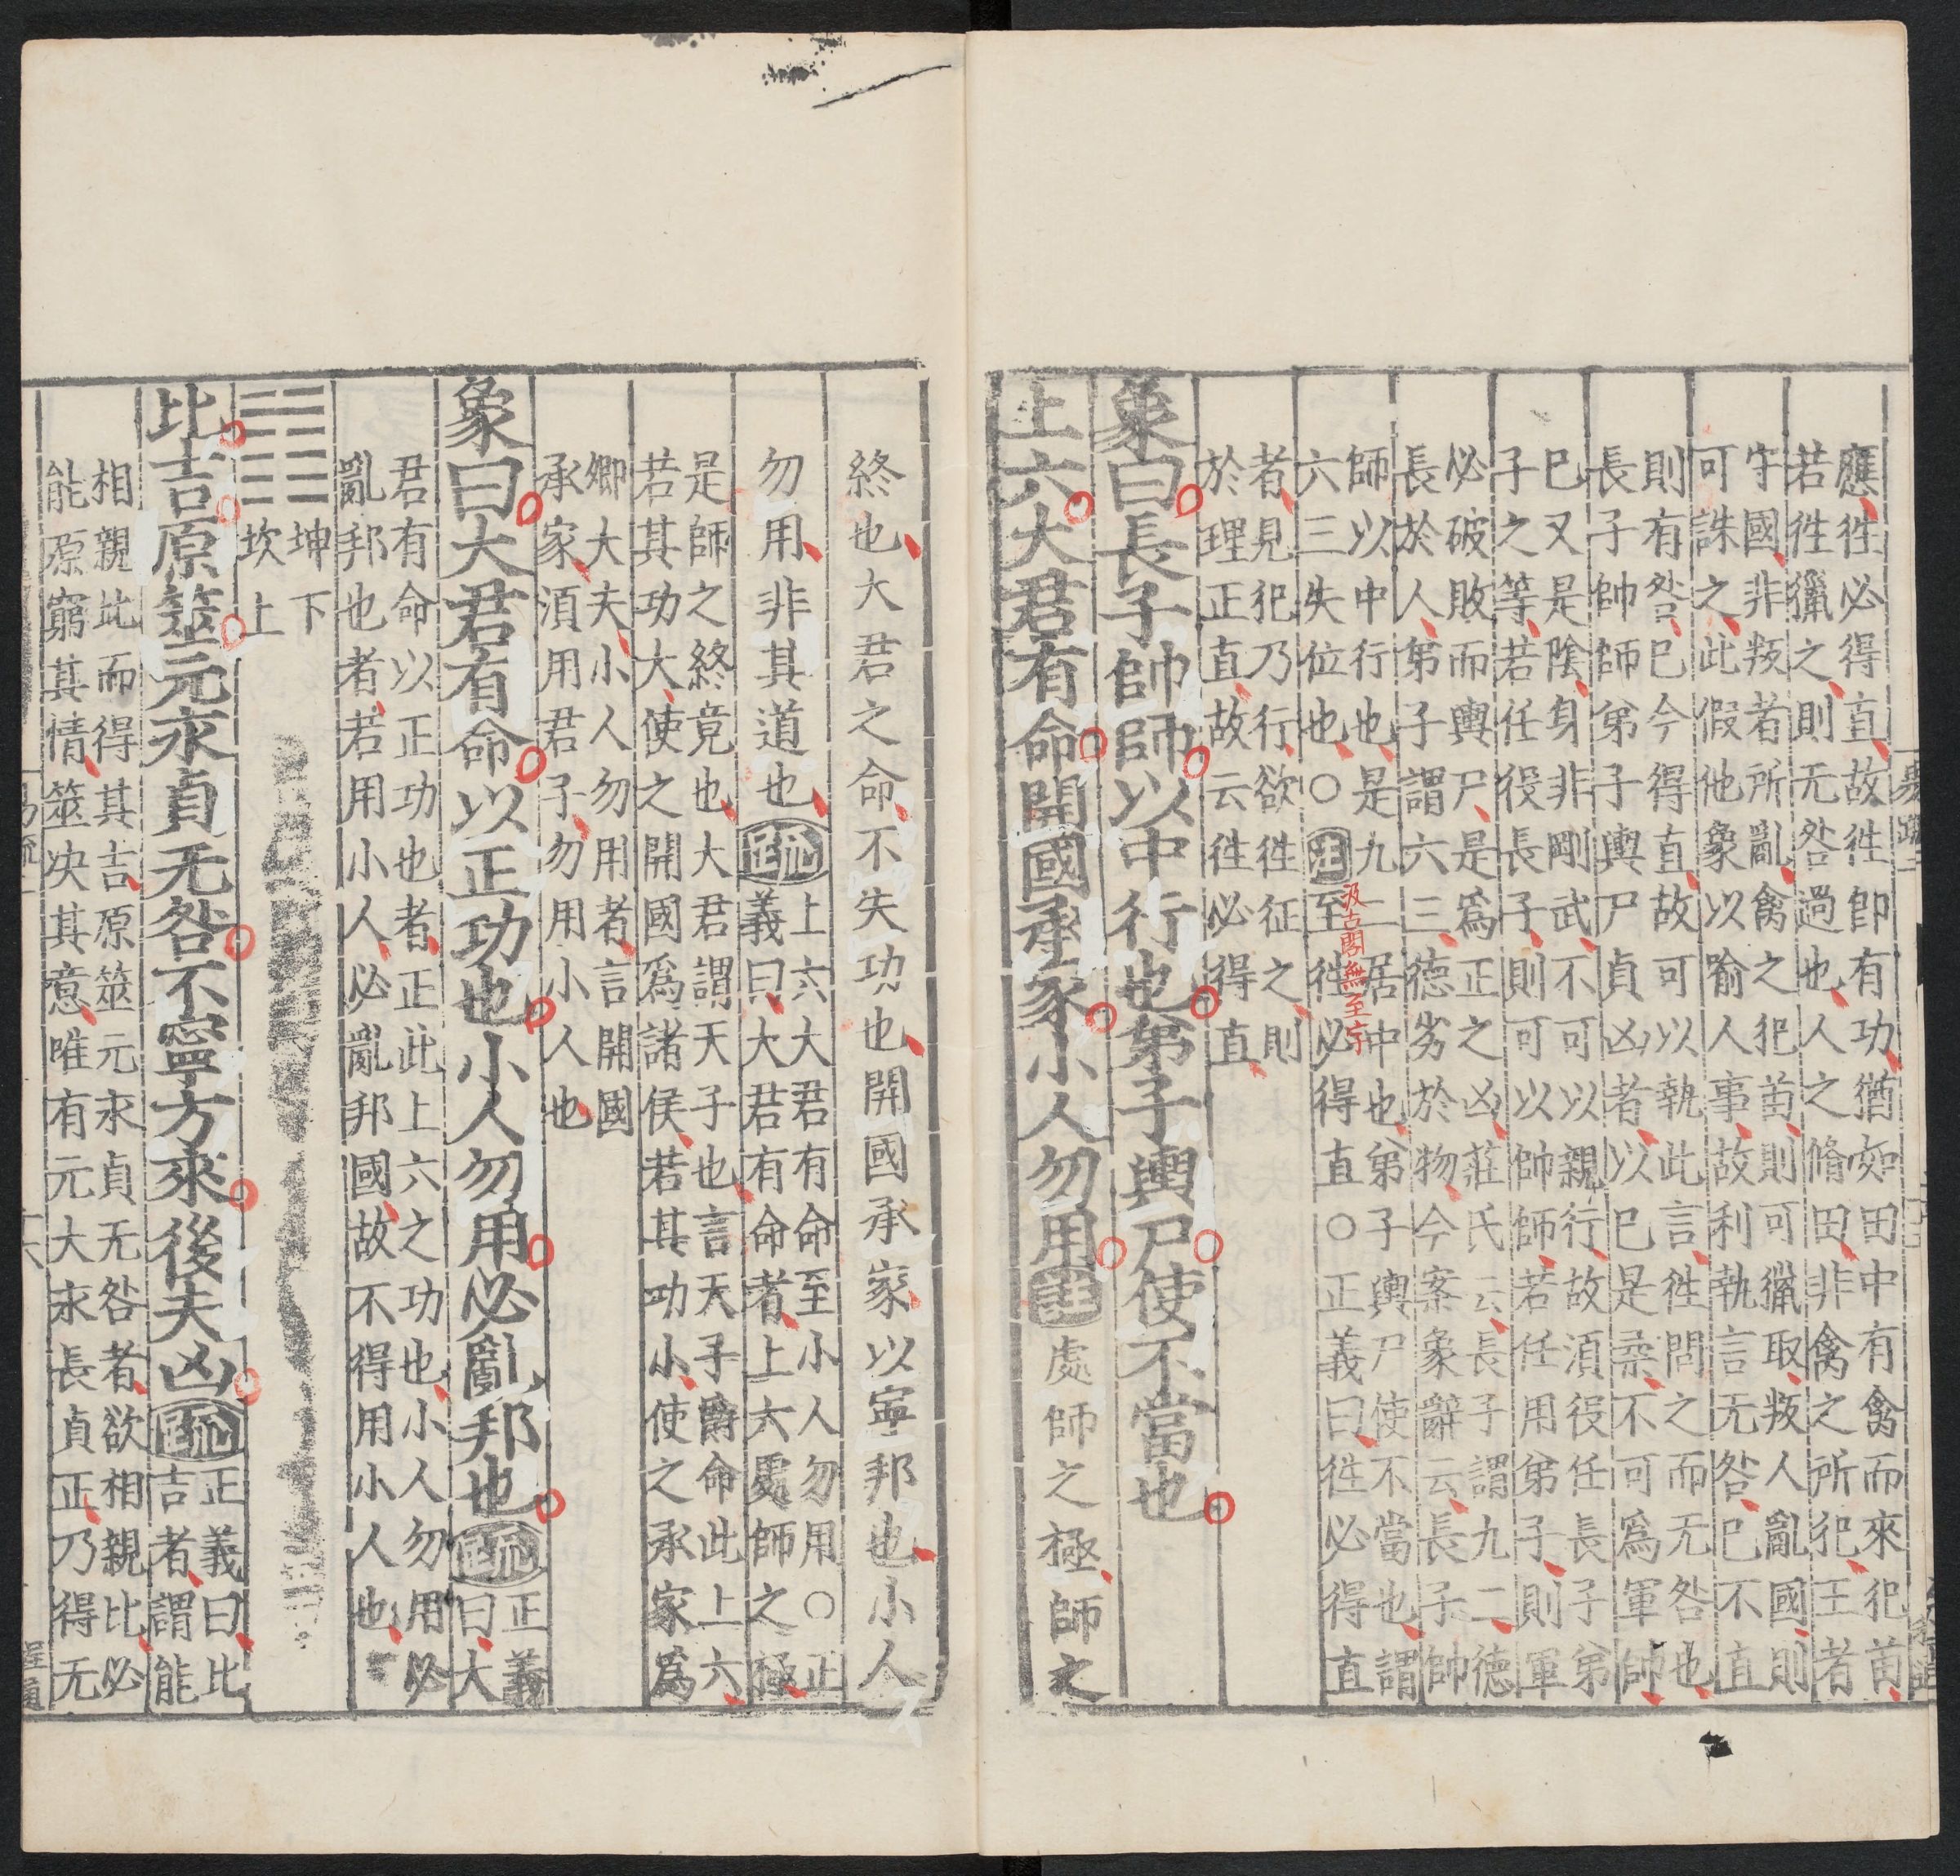 應往必得直故往即有功猶如田中有禽而來犯苗
若往獵之則无咎過也人之脩田非禽之所犯王者
守國非叛者所亂禽之犯苗則可獵取叛人亂國則
可誅之此假他象以喻人事故利執言无咎已不直
則有咎已今得直故可以執此言往問之而无咎也
長子帥師弟子輿尸貞凶者以已是柔不可爲軍帥
已又是陰身非剛武不可以親行故須役任長子弟
子之等若任役長子則可以帥師若任用弟子則軍
必破敗而輿尸是爲正之凶莊氏云長子謂九二德
長於人弟子謂六三德劣於物今案象辭云長子帥
師以中行也是九二居中也弟子輿尸使不當也謂
六三失位也○注至往必得直○正義曰往必得直
汲古閣無至字
者見犯乃行欲往征之則
於理正直故云往必得直
象曰長子帥師以中行也弟子輿尸使不當也
上六大君有命開國承家小人勿用注處師之極師之
終也大君之命不失功也開國承家以寧邦也小人
勿用非其道也疏
上六大君有命至小人勿用○正
義曰大君有命者上六處師之極
是師之終竟也大君謂天子也言天子爵命此上六
若其功大使之開國爲諸侯若其功小使之承家爲
卿大夫小人勿用者言開國
承家須用君子勿用小人也
象曰大君有命以正功也小人勿用必亂邦也疏
正義
曰大
君有命以正功也者正此上六之功也小人勿用必
亂邦也者若用小人必亂邦國故不得用小人也
坤下
坎上
比吉原筮元永貞无咎不寧方來後夫凶疏
正義曰比
吉者謂能
相親比而得其吉原筮元永貞无咎者欲相親比必
能原窮其情筮決其意唯有元大永長貞正乃得无